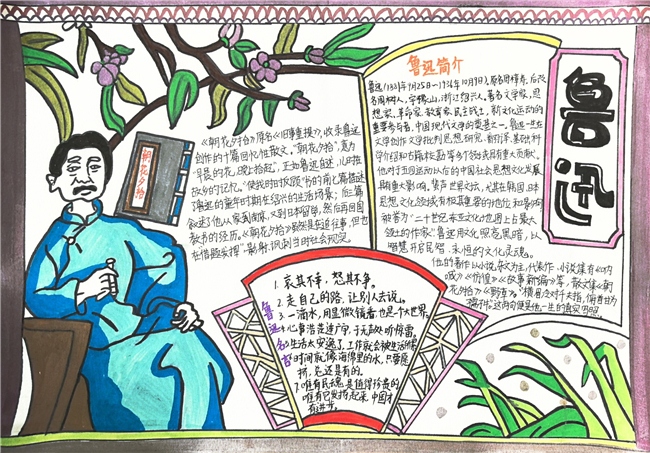 鲁迅
鲁迅简介
鲁迅(1881年9月25日—1936年10月19日),原名周樟寿,后改
名周树人,字豫山,浙江绍兴人。著名文学家,思
想家,革命家,教育家,民主战士,新文化运动的
重要参与者,中国现代文学的奠基人。鲁迅一生在
文学创作文学批判思想研究,翻译,基础科
学介绍和古籍校勘等多个领域具有重大贡献。
他对于五四运动以后的中国社会思想文化发展
具有重大影响,蜚声世界文坛,尤其在韩国,日本
思想文化领域有极其重要的地位和影响
被誉为"二十世纪东亚文化地图上占最大
领土的作家"鲁迅用文化照亮黑暗,以
智慧开启民智,永恒的文化灵魂。
他的著作以小说,杂文为主,代表作:小说集有《呐
喊》《彷徨》《故事新编》等,散文集《朝
花夕拾》《野草》。"横眉冷对千夫指,俯首甘为
孺子牛,这两句便是他一生的真实写照
朝花夕拾
《朝花夕拾》原名《旧事重提》,收录鲁迅
创作的十篇回忆性散文。"朝花夕拾",意为
早晨的花,晚上拾起",正如鲁迅自述,儿时在
故乡的记忆,"使我时时反顾"书的前七篇描述
了鲁迅的童年时期在绍兴的生活场景;后三篇
叙述了他从家到南京,又到日本留学,然后再回国
教书的经历。《朝花夕拾》虽然是在追往事,但也
在"借题发挥",影射,讽刺当时社会现实。
鲁迅名言
1.哀其不幸,怒其不争。
2.走自己的路,让别人去说。
3.一滴水,用显微镜看,也是个大世界。
4.心事浩茫连广宇,于无声处听惊雷。
5.生活太安逸了,工作就会被生活所累
6.时间就像海绵里的水,只要愿
挤,总还是有的。
7.唯有民魂是值得珍贵的
唯有它发扬起来,中国才
有进步。